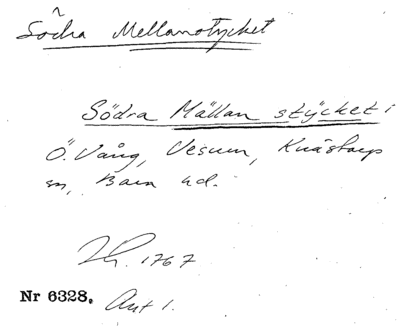 Södra Mellanstycket
Södra Mällan stÿcket i
Ö. Vång, Vesum, Knästorp
sn, Bara hd.
Lh. 1767
Nr 6328. Akt 1.